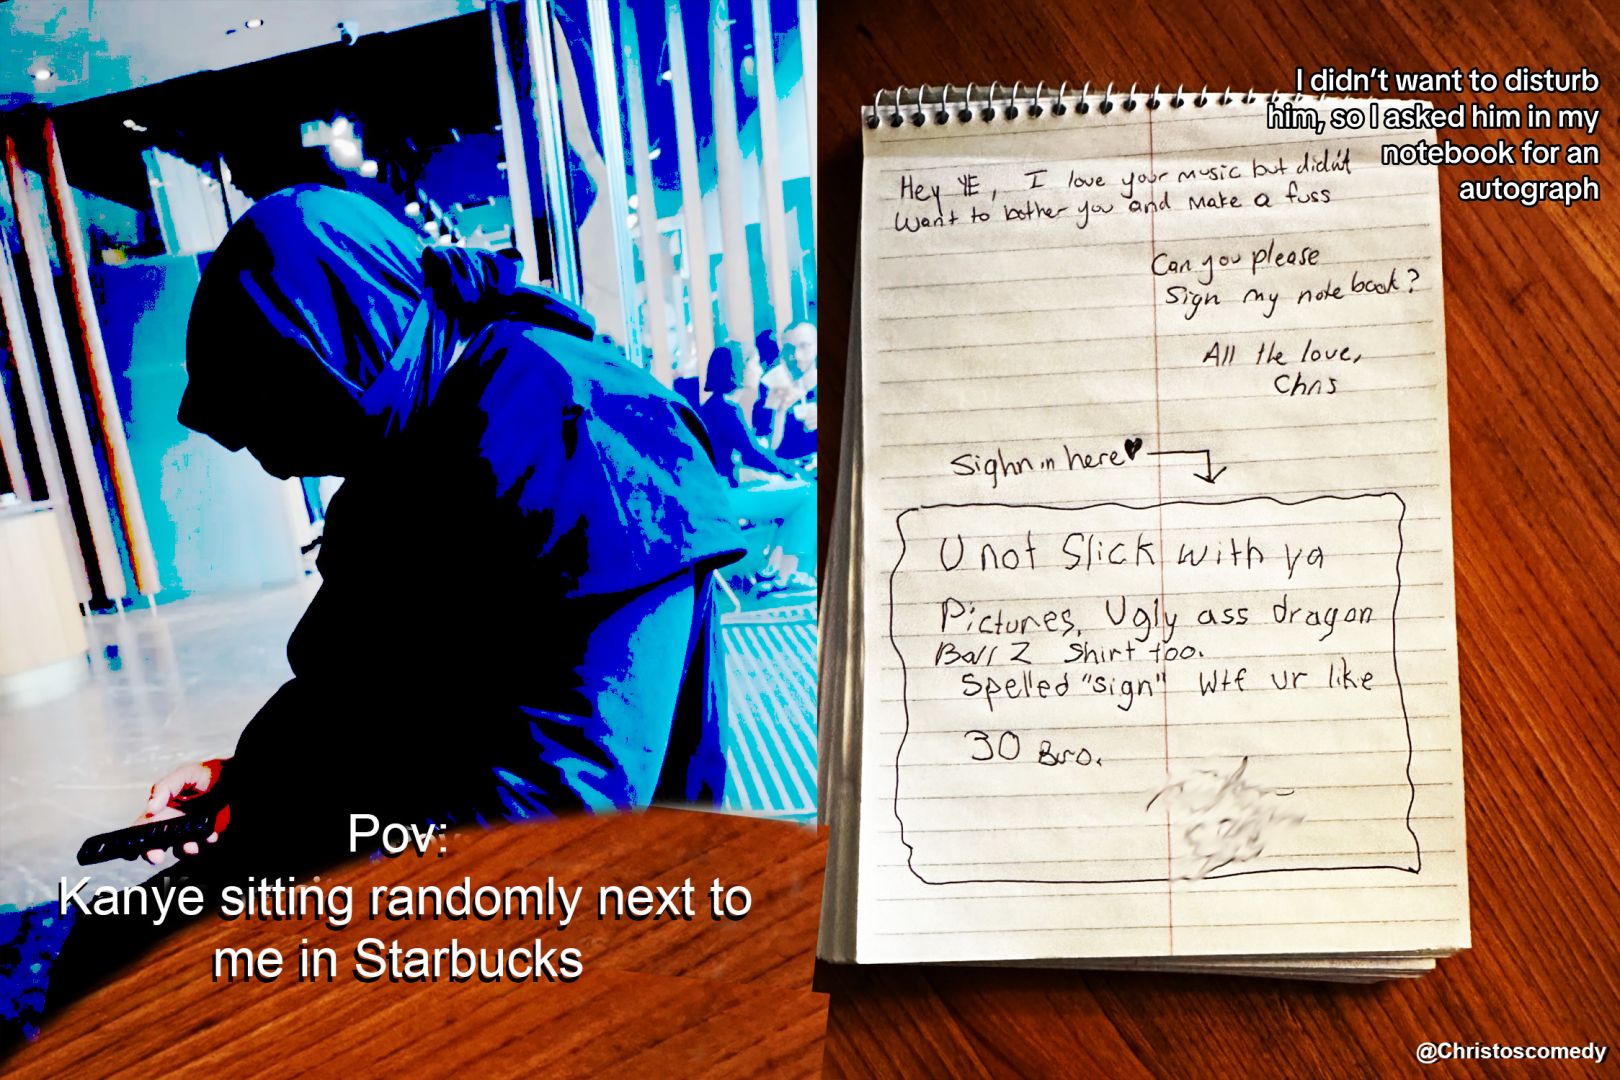 Pov:
Kanye sitting randomly next to
me in Starbucks
I didn't want to disturb
him, so I asked him in my
notebook for an
autograph
Hey YE, I love your music but didn't
want to bother you and make a fuss
Can you please
Sign my notebook?
All the love,
Chris
Sighn in here♥
U not Slick with ya
Pictures, Ugly ass dragon
Ball Z Shirt too.
Spelled "sign" Wtf ur like
30 Bro.
@Christoscomedy